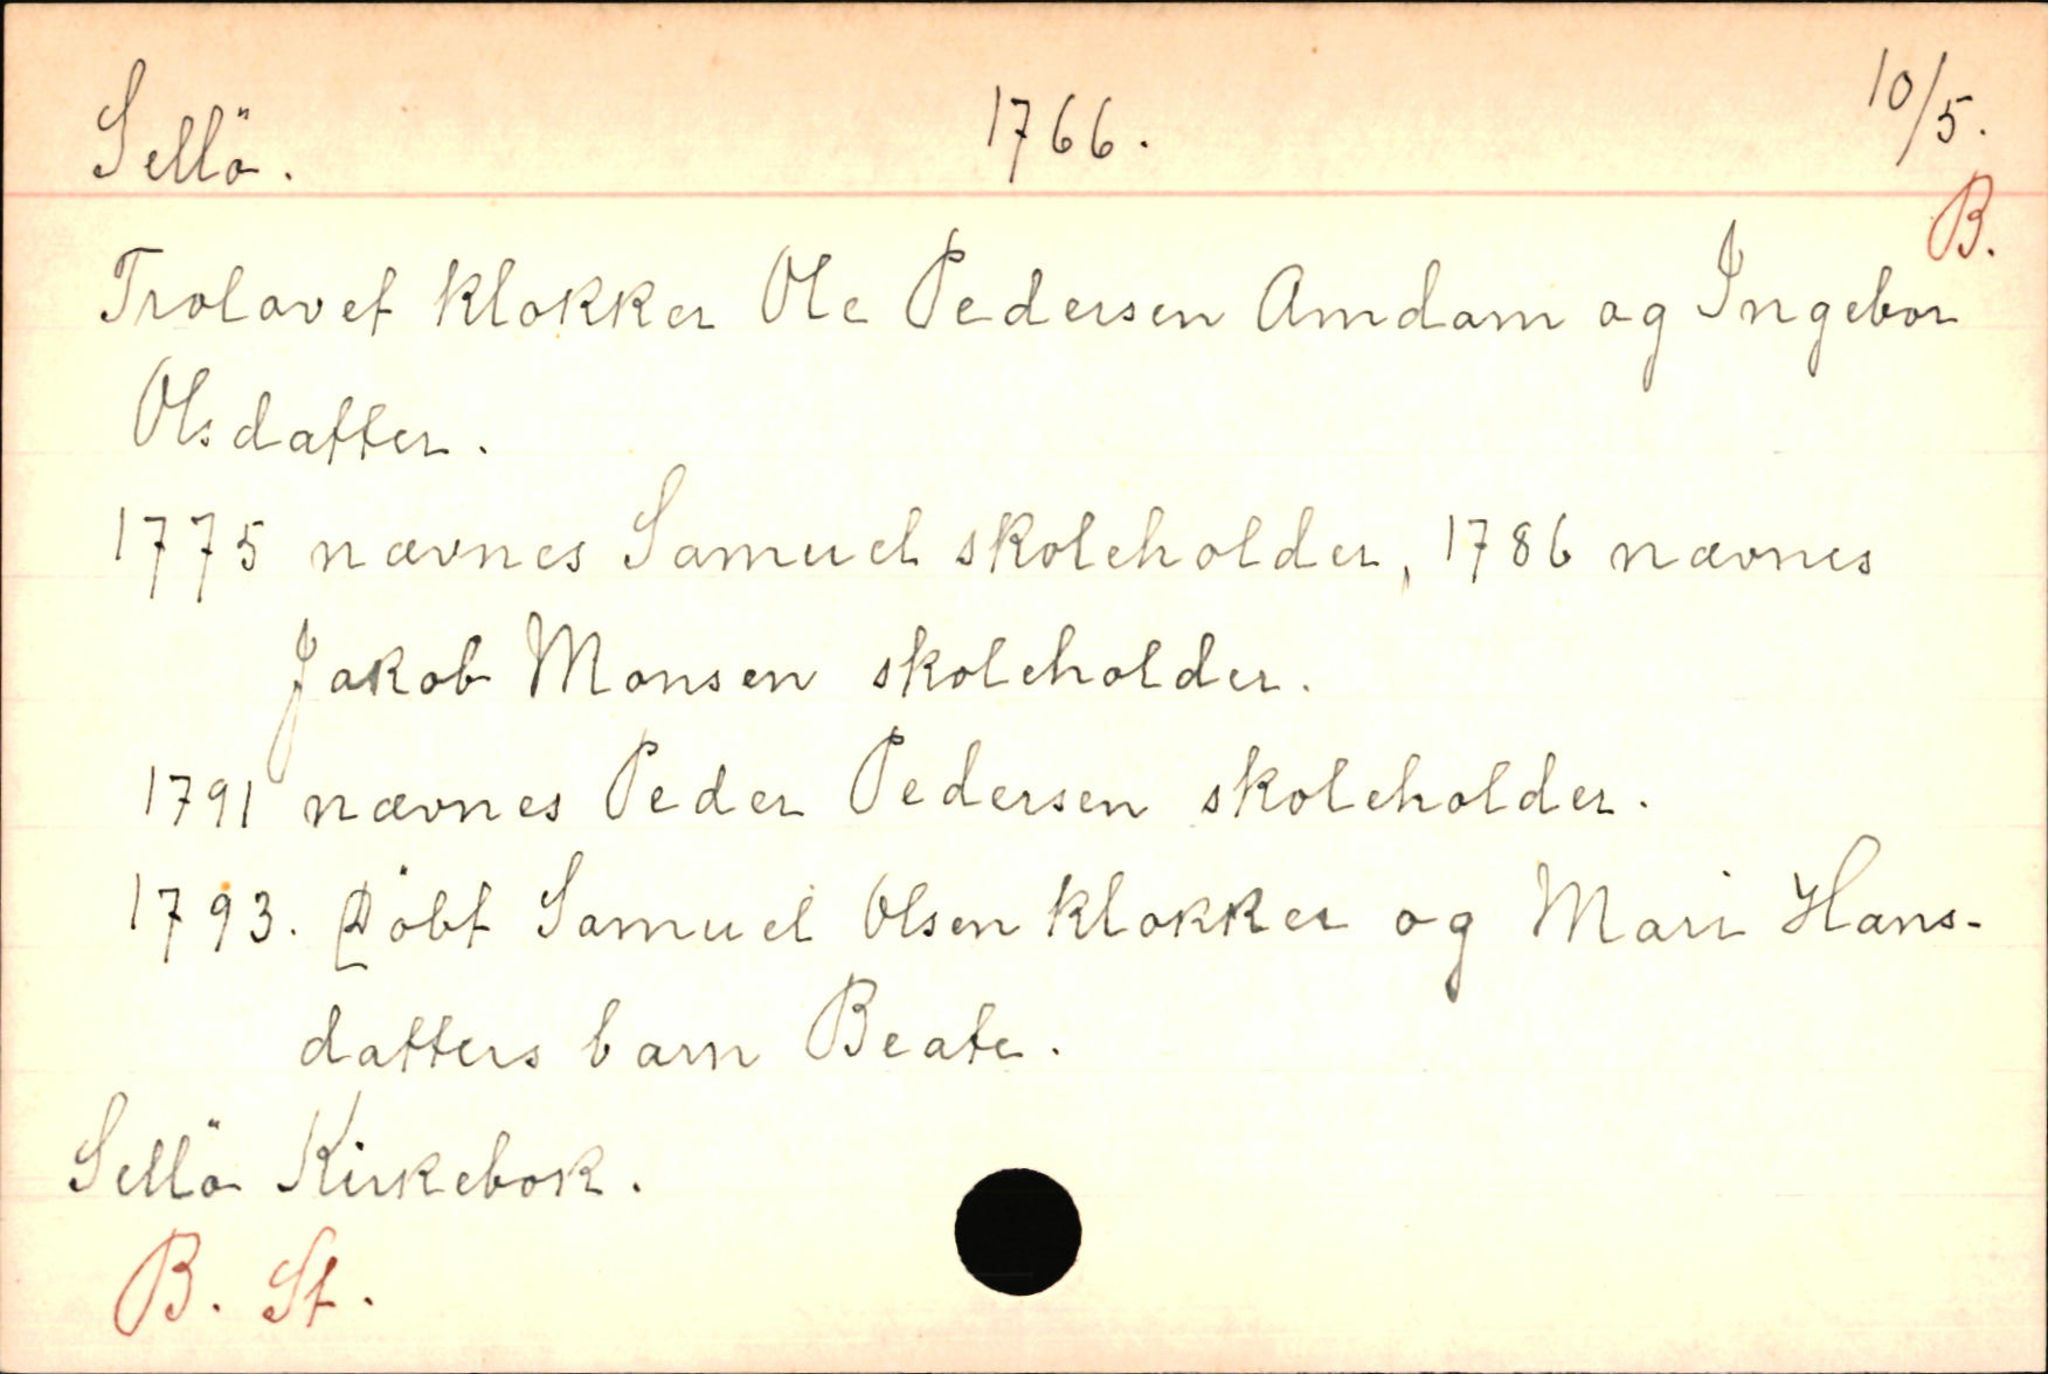 Sellö. 1766. 10/5.
B.
Trolovet klokker Ole Pedersen Amdam og Ingebor
Olsdatter.
1775 nævnes Samuel skoleholder, 1786 nævnes
Jakob Monsen skoleholder.
1791 nævnes Peder Pedersen skoleholder.
1793. Döbt Samuel Olsen klokker og Mari Hans-
datters barn Beate.
Sellö Kirkebok.
B. St.